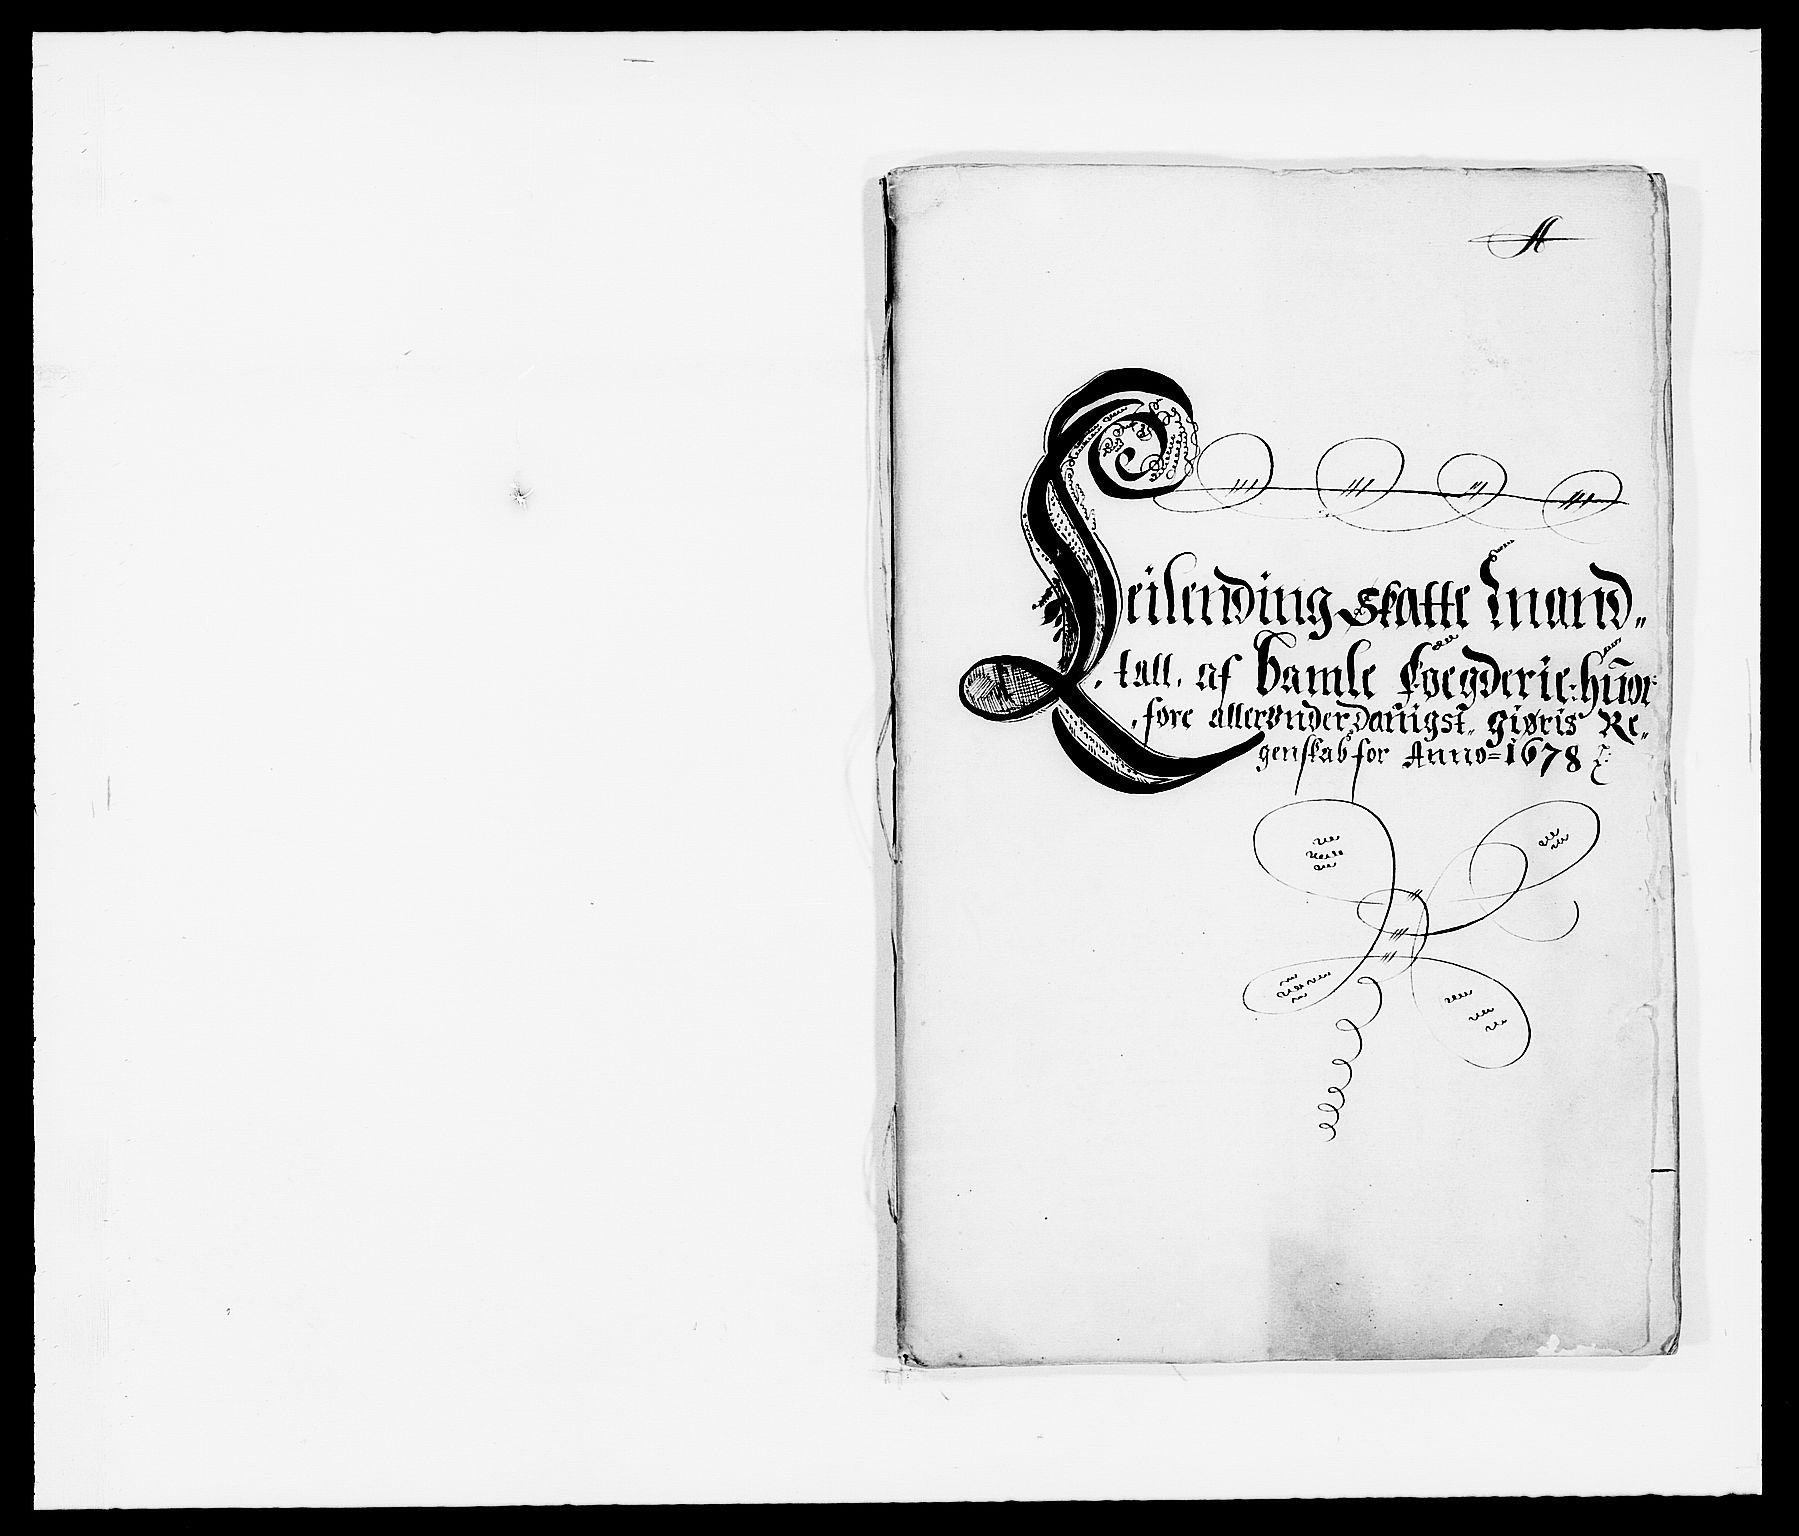 A
Leilending skatte Mand„
tall. af Bamle Foegderie: huor
fore allerunderdanigst„ giøris Re„
genskab for Anno=1678